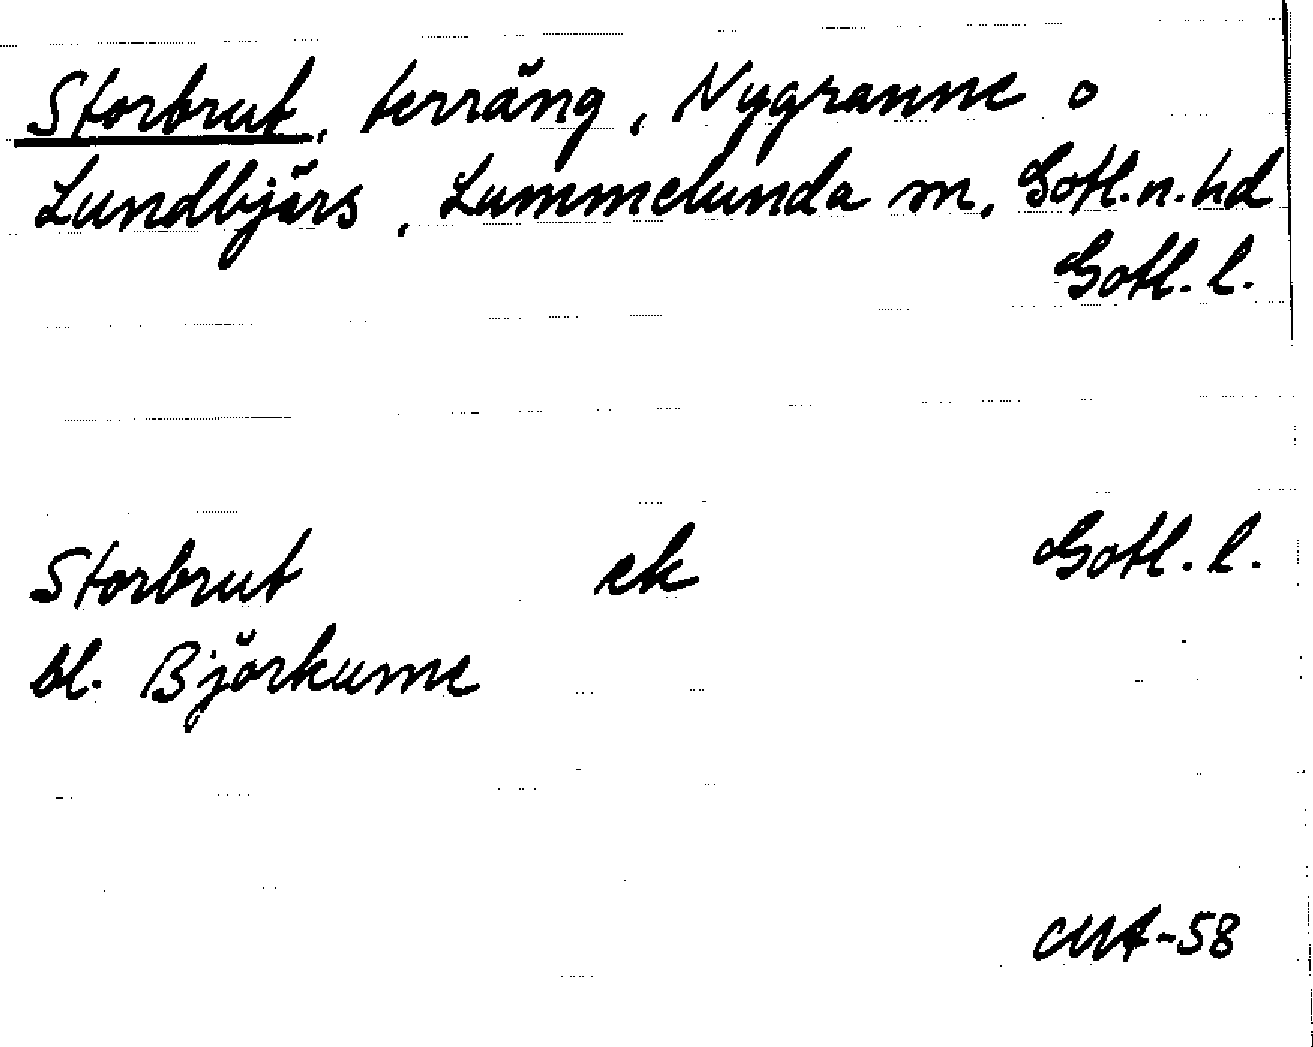 Storbrut, terräng, Nygranne o
Lundbjärs, Lummelunda sn, Gotl.n.hd
Gotl. l.
Storbrut ek Gotl. l.
bl. Björkume
CMA-58